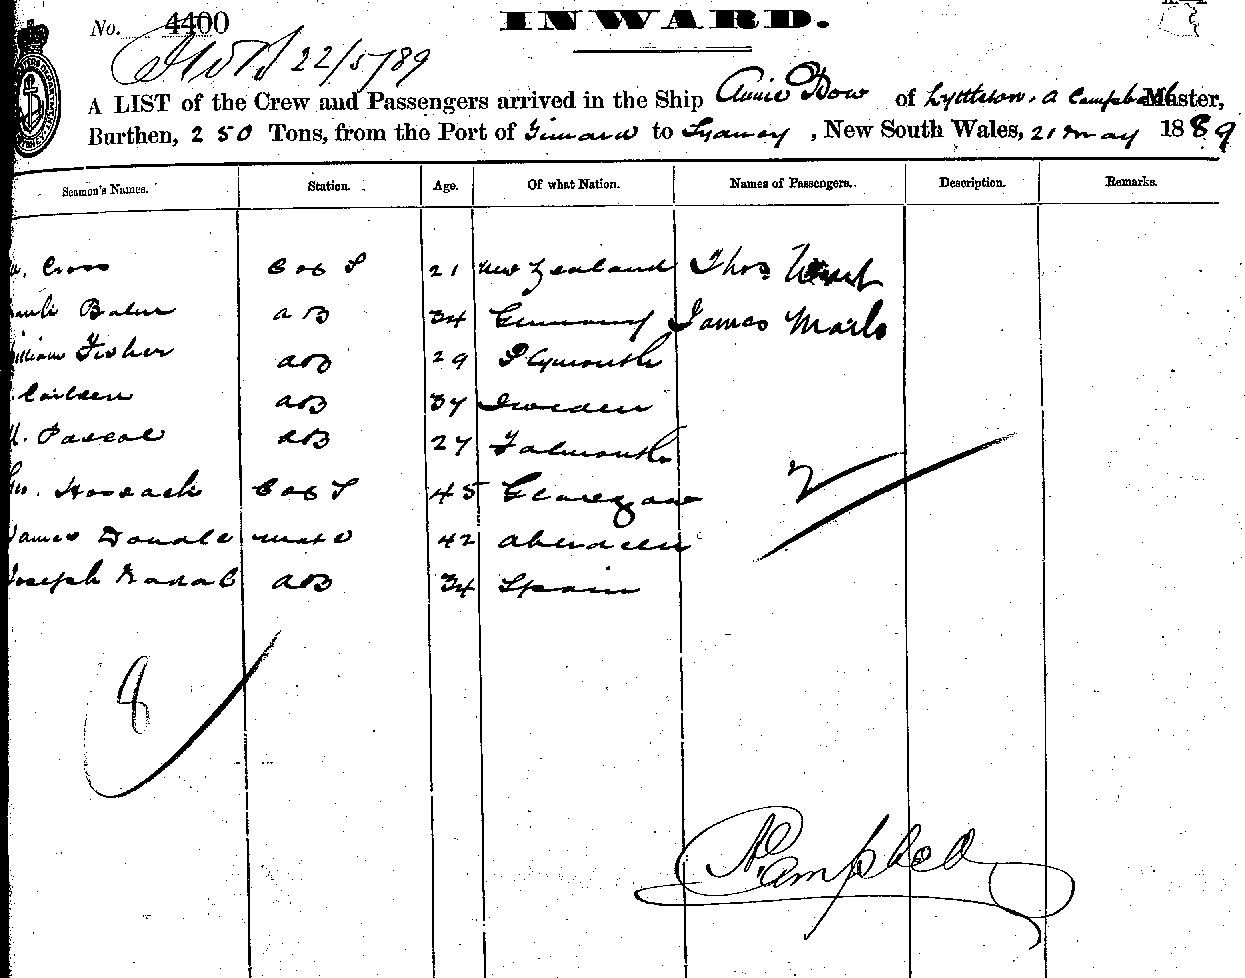 No. 4400
INWARD.
22/5/89
A LIST of the Crew and Passengers arrived in the Ship Annie Dow of Lyttleton, A Campbell Master,
Burthen, 250 Tons, from the Port of Timaru to Sydney, New South Wales, 21 May 1889
Seamen's Names. Station. Age. Of what Nation. Names of Passengers. Description. Remarks.
Cross 21 New Zealand Thos West
AB 34 Germany James Marks
William Fisher AB 29 Plymouth
Carlsen AB 37 Sweden
M. Pascoe AB 27 Falmouth
45 Glasgow
James Donald mate 42 Aberdeen
Joseph AB 34 Spain
2
8
A. Campbell